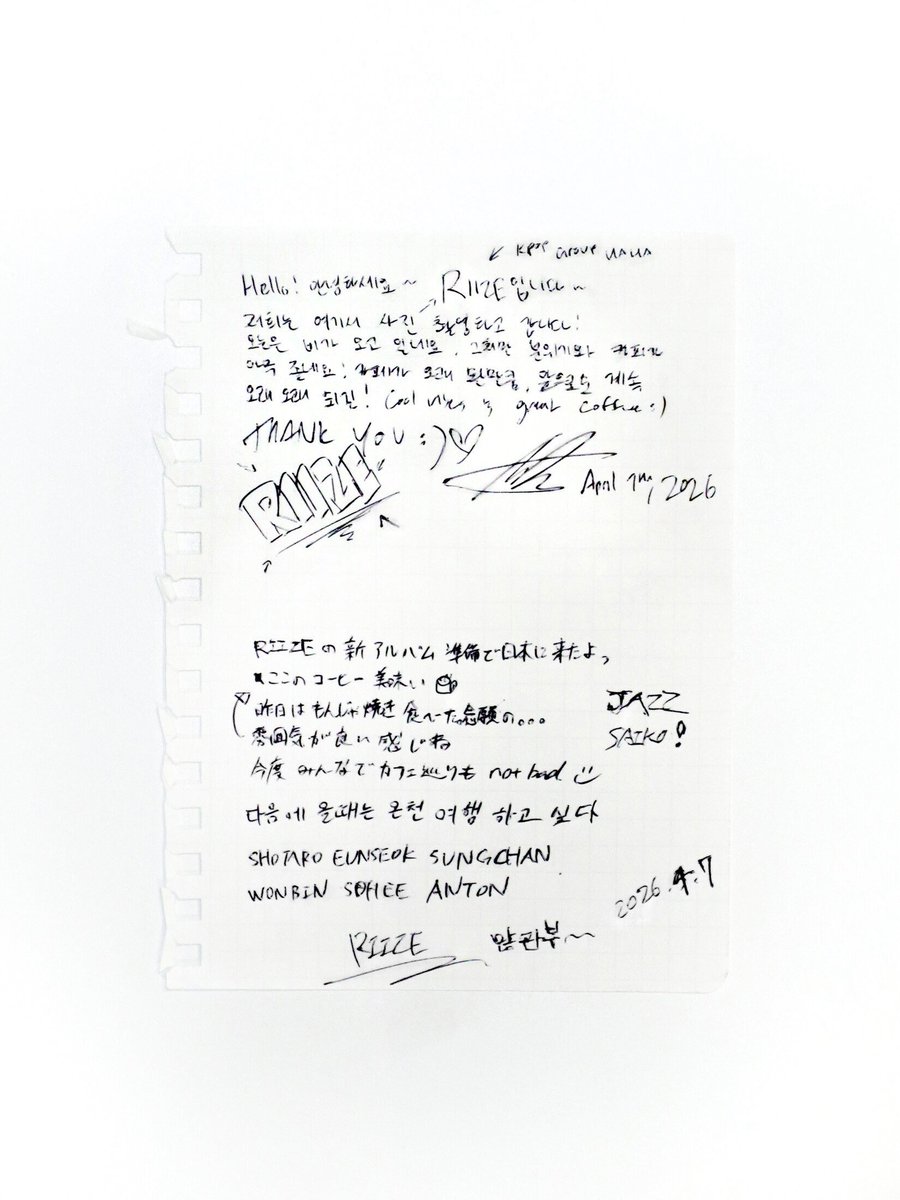 Kpop Group HAHA
Hello! 안녕하세요~ RIIZE입니다~
저희는 여기서 사진 촬영하고 갑니다!
오늘은 비가 오고 있네요. 그치만 분위기와 커피가
아주 좋네요! 카페가 오래 된만큼, 앞으로도 계속
오래오래 되길! Cool vibes & great coffee :)
THANK YOU :)♡
RIIZE
April 7th, 2026
RIIZEの新アルバム準備で日本に来たよっ
ここのコーヒー美味い
昨日はもんじゃ焼き食べた念願の...
雰囲気が良い感じね
JAZZ
SAIKO!
今度みんなでカフェ巡りも not bad
다음에 올때는 온천 여행 하고 싶다
SHOTARO EUNSEOK SUNGCHAN
WONBIN SOHEE ANTON
2026.4.7
RIIZE